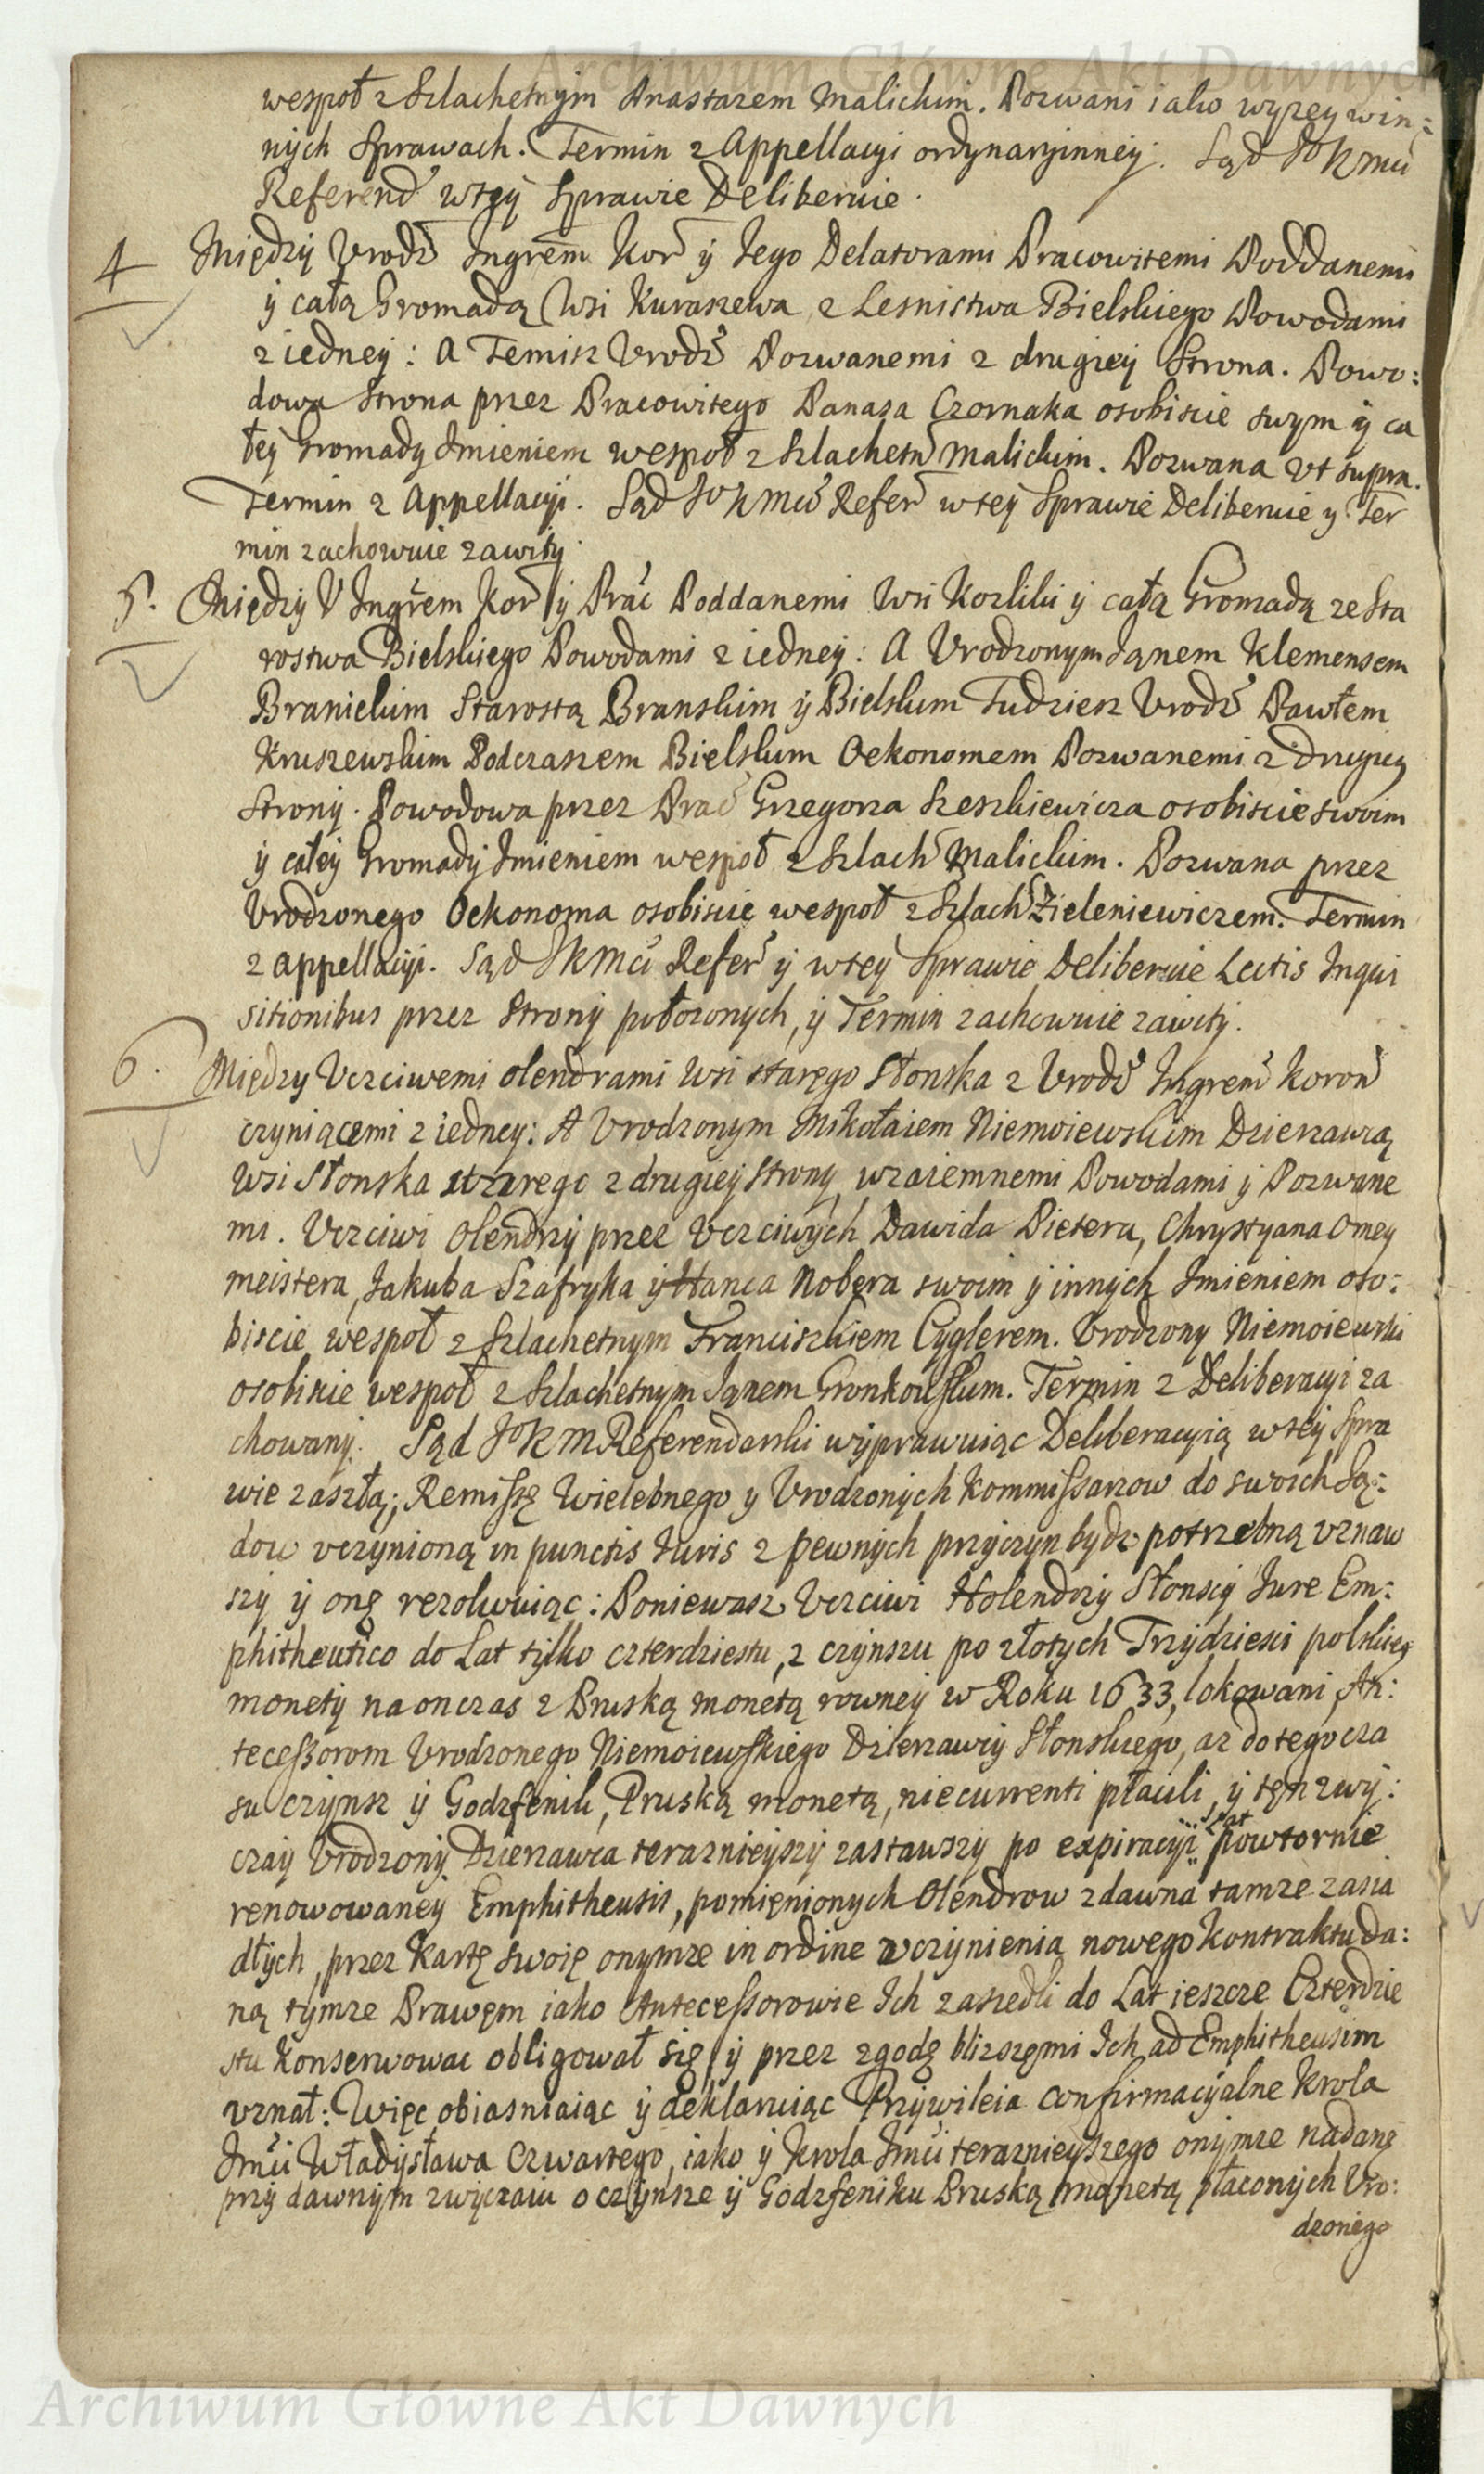 Archiwum Główne Akt Dawnych
wespoł z Szlachetnym Anastazem Malickim. Pozwani iako wyzey win=
nych Sprawach. Termin z Appellacyi ordynaryinney. Sąd JoKmci
Referend wtey Sprawie Deliberuie.
4 Między Vrodz Ingrem Kor y Jego Delatorami Pracowitemi Poddanemi
y całą Gromadą Wsi Kuraszewa z Lesnictwa Bielskiego Powodami
z iedney: A Temisz Vrodz Pozwanemi z drugiey Strona. Powo:
dowa Strona przez Pracowitego Panasa Czornaka osobiscie swym y ca
łey Gromady Jmieniem wespoł z Szlachetn Malickim. Pozwana vt supra.
Termin z Appellacyi. Sąd JoKmci Refer wtey Sprawie Deliberuie y Ter
min zachowuie zawity.
5. Między V Ingrem Kor y Prac Poddanemi Wsi Kozliki y całą Gromadą ze Sta
rostwa Bielskiego Powodami z iedney: A Vrodzonym Janem Klemensem
Branickim Starostą Branskim y Bielskim Tudziesz Vrodz Pawłem
Kruszewskim Podczaszem Bielskim Oekonomem Pozwanemi z drugiey
Strony. Powodowa przez Prac Grzegorza Szeszkiewicza osobiscie swoim
y całey Gromady Jmieniem wespoł z Szlach Malickim. Pozwana przez
Vrodzonego Oekonoma osobiscie wespoł z Szlach Zieleniewiczem. Termin
z appellacyi. Sąd JKmci Refer y wtey Sprawie Deliberuie Lectis Inqui
sitionibus przez Strony połozonych, y Termin zachowuie zawity.
6. Między Vczciwemi olendrami Wsi starego Słonska z Vrodz Ingrem Koron
czyniącemi z iedney: A Vrodzonym Mikołaiem Niemoiewskim Dzierzawcą
Wsi Słonska starego z drugiey Strony, wzaiemnemi Powodami y Pozwane
mi. Vczciwi Olendrzy przez Vczciwych Dawida Pietera, Chrystyana Omey
meistera, Jakuba Szafryka y Hanca Nobera swoim y innych Jmieniem oso:
biscie wespoł z Szlachetnym Franciszkiem Cyglerem. Vrodzony Niemoiewski
osobiscie wespoł z Szlachetnym Janem Gronkowskim. Termin z Deliberacyi za
chowany. Sąd JoKM Referendarski wyprawuiąc Deliberacyią wtey Spra
wie zaszłą; Remissę Wielebnego y Vrodzonych Kommissarzow do swoich Są:
dow vczynioną in punctis Juris z pewnych przyczyn bydz potrzebną vznaw
szy y onę rezolwuiąc: Poniewasz Vczciwi Holendrzy Słonscy Jure Em:
phitheutico do Lat tylko czterdziestu, z czynszu po złotych Trzydziesci polskiey
monety na onczas z Pruską monetą rowney w Roku 1633, lokowani, An:
tecessorom Vrodzonego Niemoiewskiego Dzierzawcy Słonskiego, az do tego cza
su czynsz y Godzfenik, Pruską monetą, nie currenti płacili, y ten zwy:
czay Vrodzony Dzierzawca teraznieyszy zastawszy po expiracyi Lat powtornie
renowowaney Emphitheusis, pomięnionych Olendrow zdawna tamze zasia
dłych, przez Kartę swoię onymze in ordine vczynienia nowego Kontraktu da:
ną tymze Prawem iako Antecessorowie Ich zasiedli do Lat ieszcze Czterdzie
stu Konserwowac obligował się, y przez zgodę blizszemi Ich ad Emphitheusim
vznał: Więc obiasniaiąc y deklaruiąc Przywileia confirmacyalne Krola
Jmci Władysława Czwartego, iako y Krola Jmci teraznieyszego onymze nadane
przy dawnym zwyczaiu o czynsze y Godzfeniku Pruską monetą płaconych Vro:
dzonego
Archiwum Główne Akt Dawnych